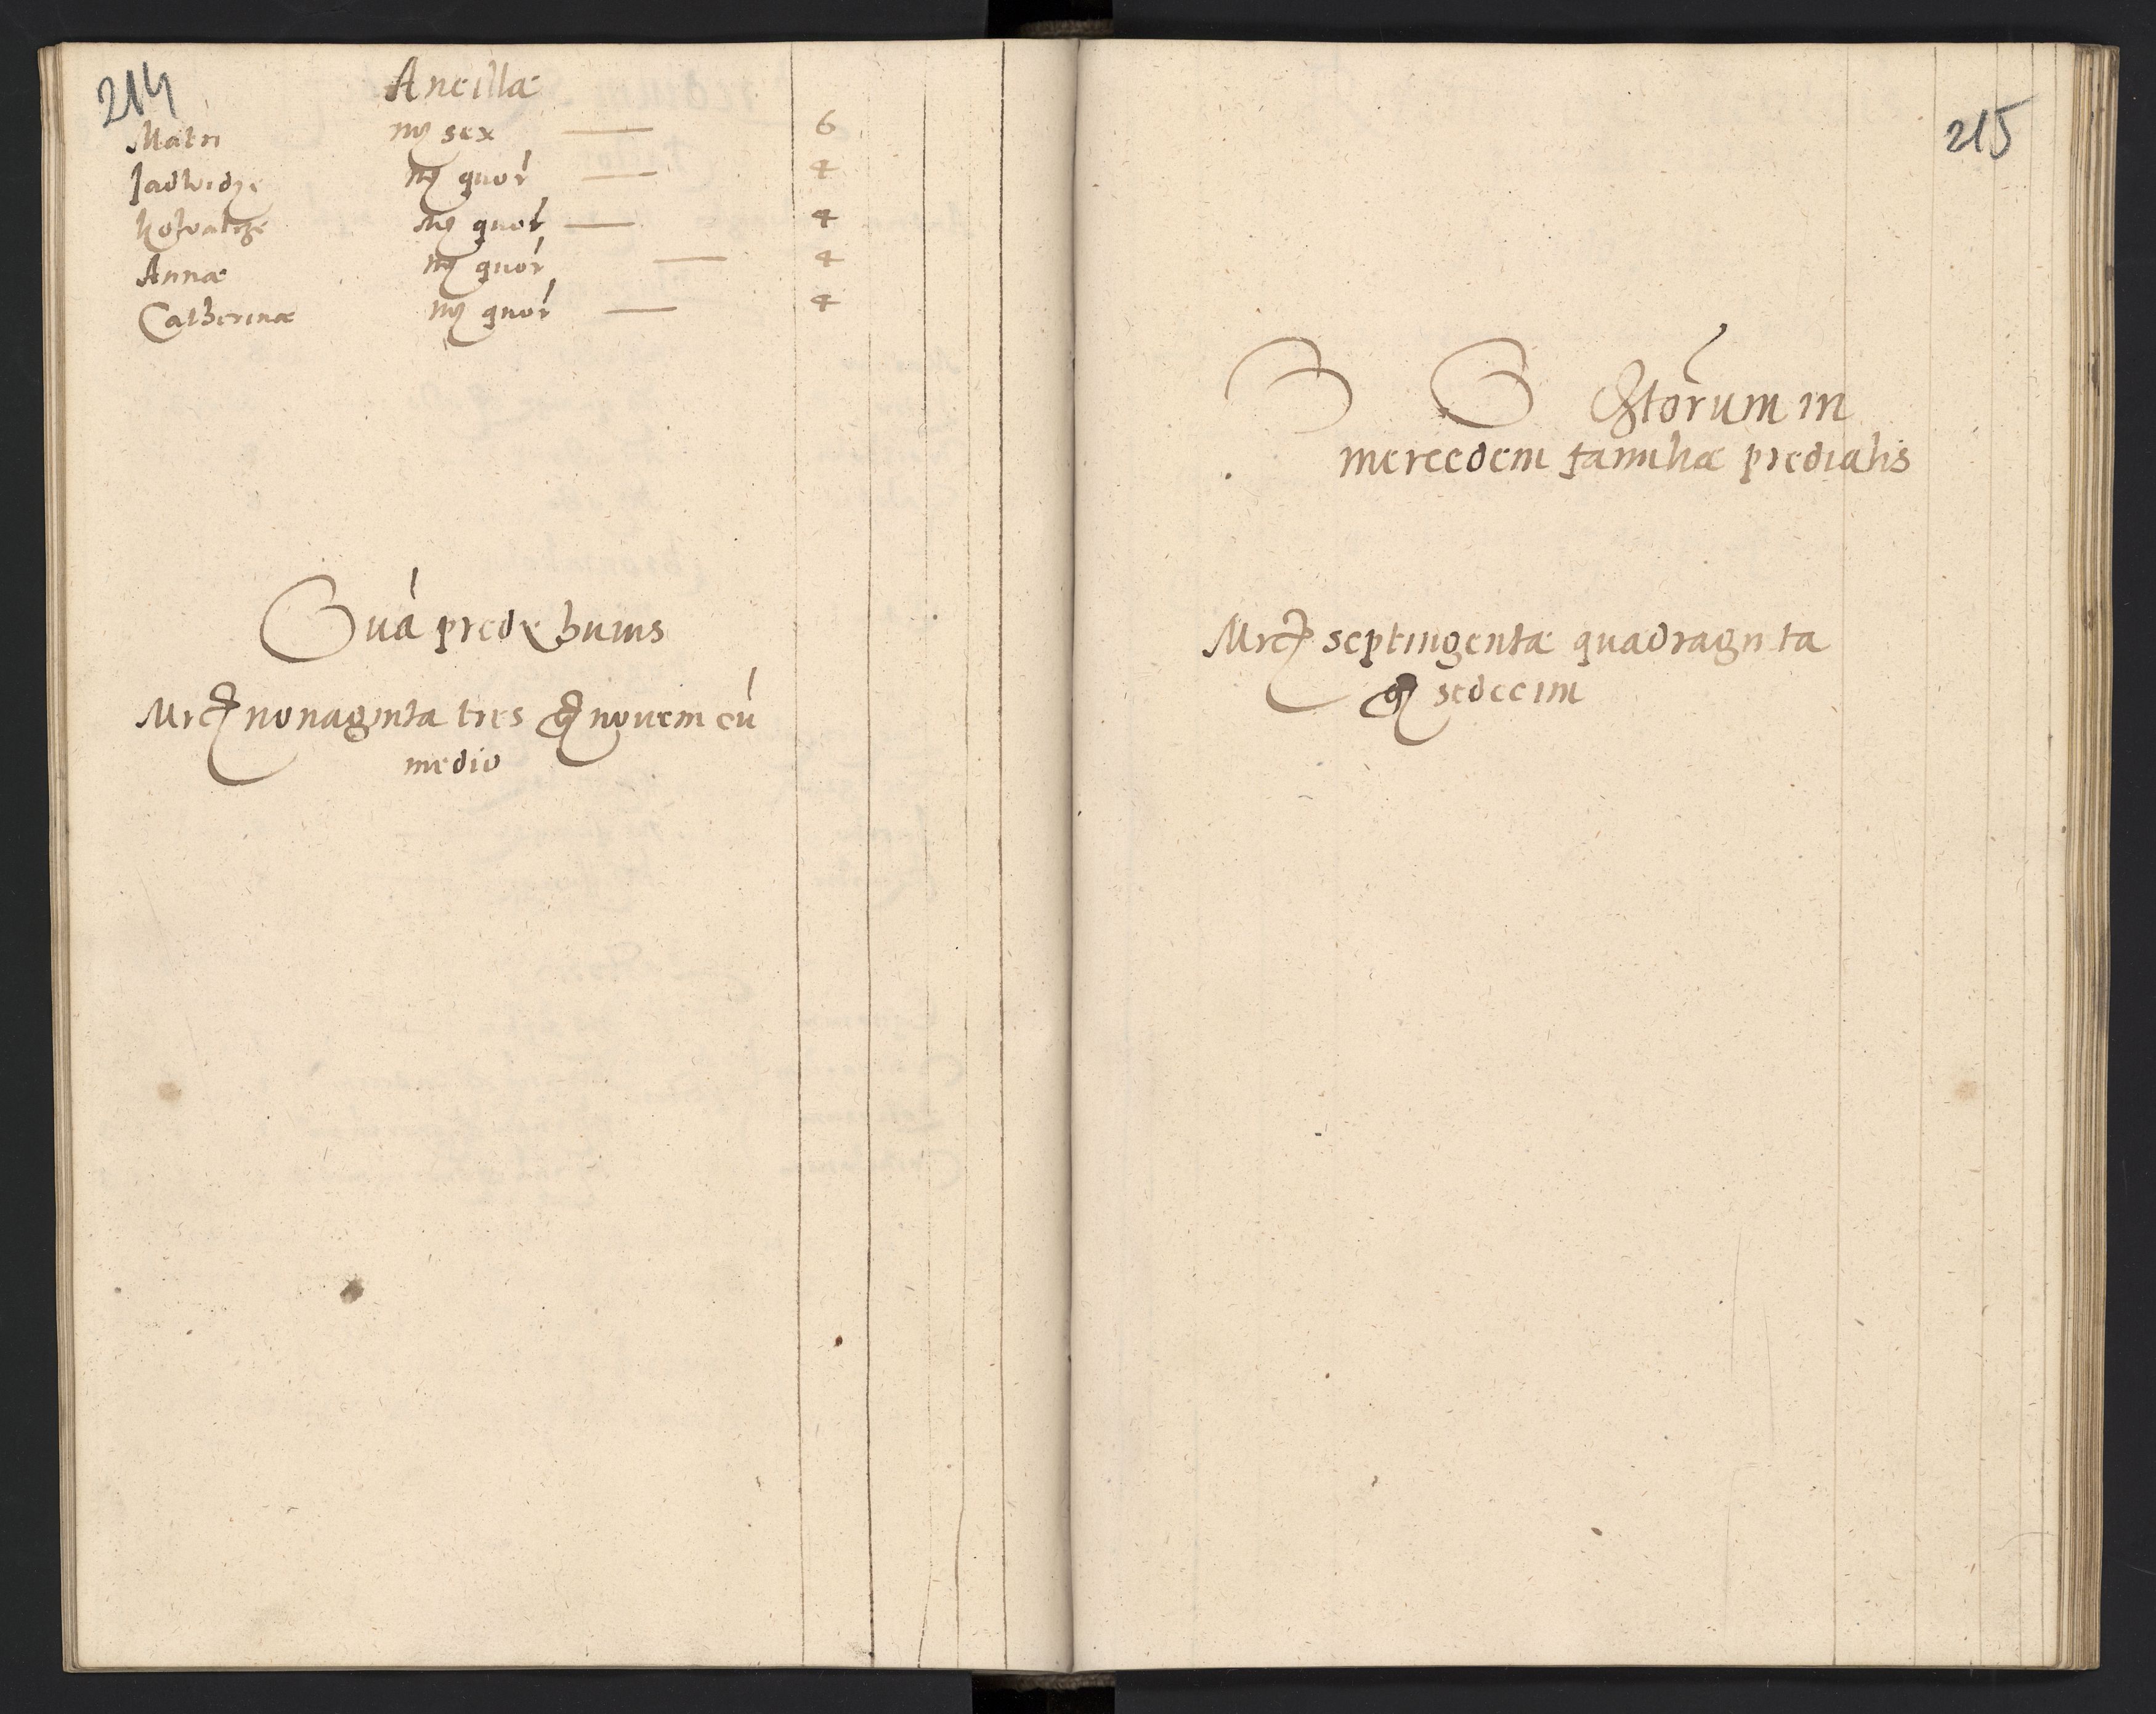 214
Ancillæ
Matri mr sex — 6
Jadwidze mr quor — 4
mr quor — 4
Annæ mr quor — 4
Catherinæ mr quor — 4
Sua predy huius
Mrc nonaginta tres gr novem cu
medio
215
S S Extorum in
mercedem familiæ predialis
Mrc septingentæ quadraginta
gr sedecim